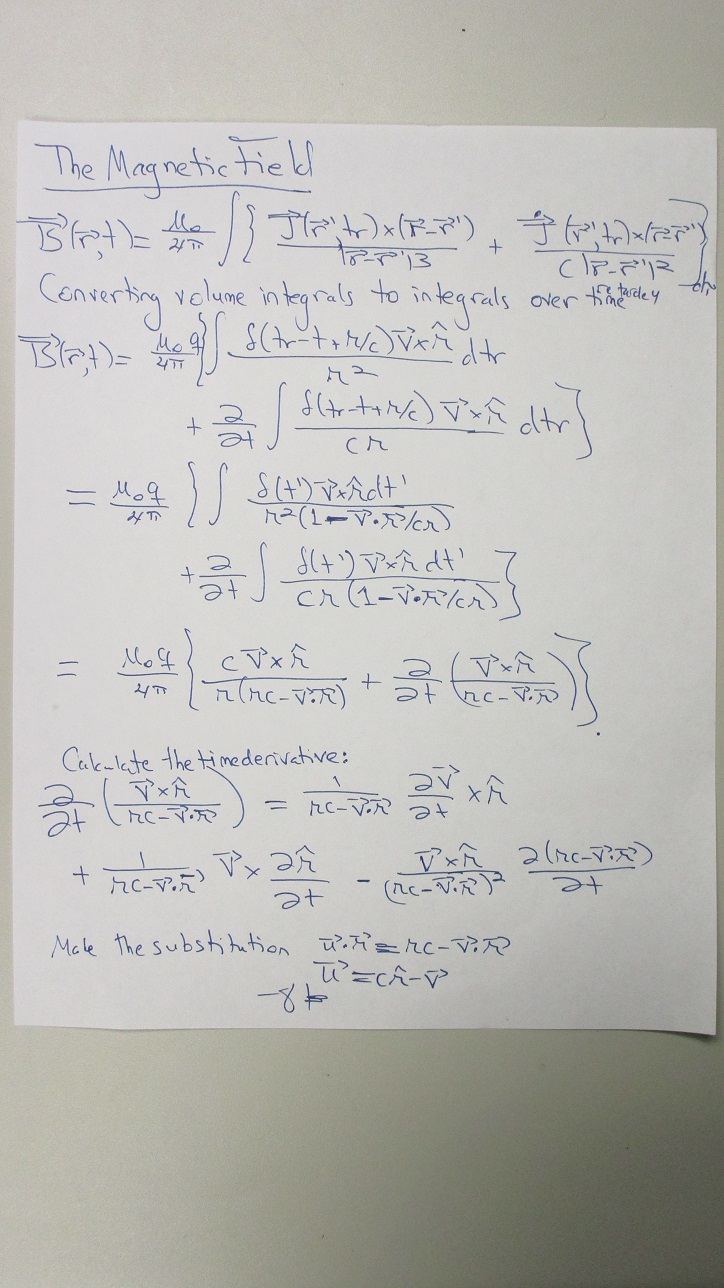 The Magnetic Field
B⃗(r⃗,t) = μ₀/4π ∫{ J⃗(r⃗',tr)×(r⃗-r⃗')/|r⃗-r⃗'|³ + J⃗(r⃗',tr)×(r⃗-r⃗')/c|r⃗-r⃗'|² }
Converting volume integrals to integrals over time
B⃗(r⃗,t) = μ₀q/4π {∫ δ(tr-t+r/c) v⃗×r̂/r² dtr
+ ∂/∂t ∫ δ(tr-t+r/c) v⃗×r̂/cr dtr}
= μ₀q/4π {∫ δ(t') v⃗×r̂ dt'/r²(1-v⃗·r⃗/cr)
+ ∂/∂t ∫ δ(t') v⃗×r̂ dt'/cr(1-v⃗·r⃗/cr)}
= μ₀q/4π { c v⃗×r̂/r(rc-v⃗·r⃗) + ∂/∂t (v⃗×r̂/rc-v⃗·r⃗)}.
Calculate the time derivative:
∂/∂t (v⃗×r̂/rc-v⃗·r⃗) = 1/rc-v⃗·r⃗ ∂v⃗/∂t ×r̂
+ 1/rc-v⃗·r⃗ v⃗× ∂r̂/∂t - v⃗×r̂/(rc-v⃗·r⃗)² ∂(rc-v⃗·r⃗)/∂t
Make the substitution u⃗·r⃗ = rc-v⃗·r⃗
u⃗ = cr̂-v⃗
-8